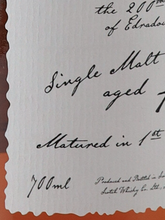 the 200
of Edradou
Single Malt
aged
Matured in 1st
700ml
Produced and Bottled in
Scotch Whisky Co. Ltd